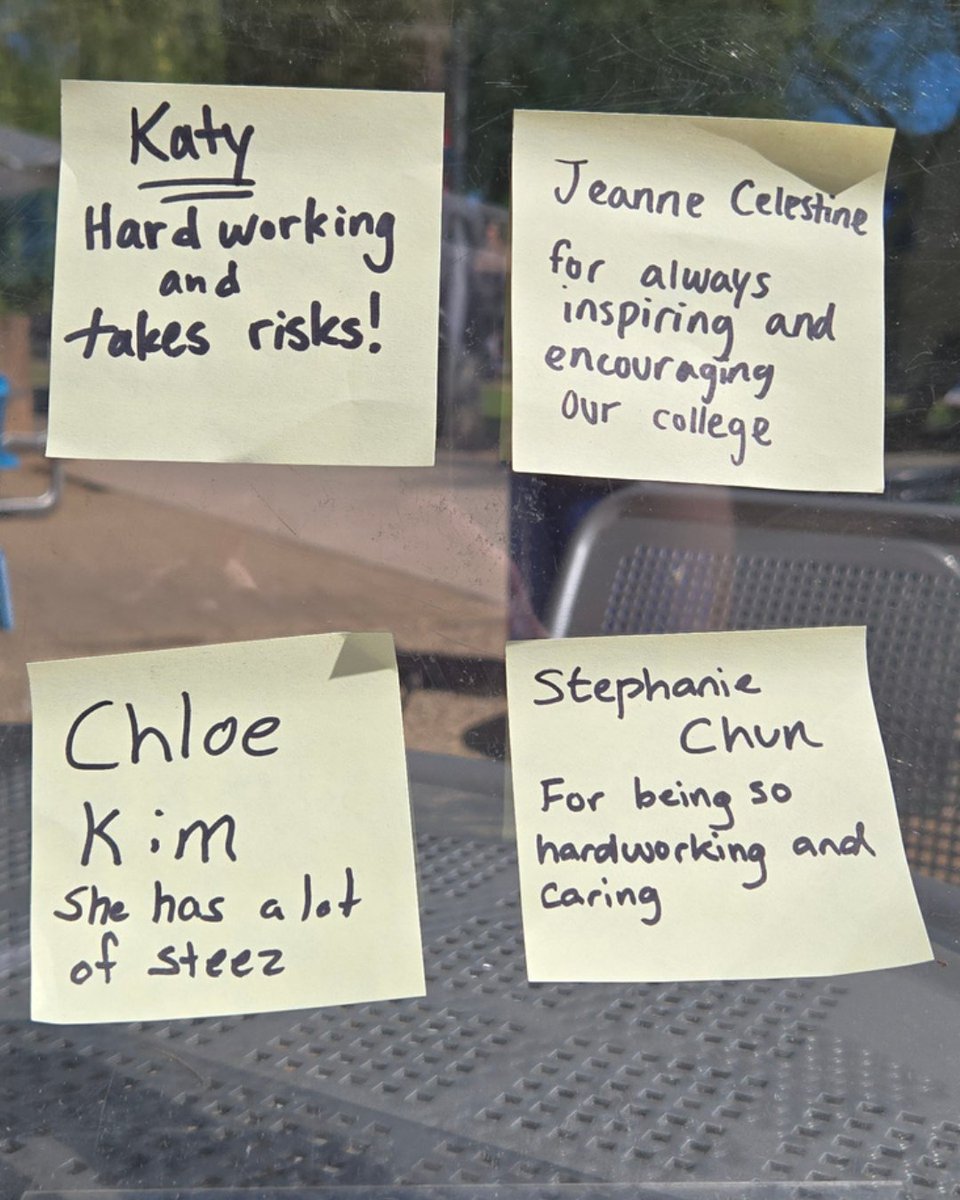 Katy
Hard working
and
takes risks!
Jeanne Celestine
for always
inspiring and
encouraging
our college
Chloe
Kim
She has a lot
of steez
Stephanie
Chun
For being so
hardworking and
caring